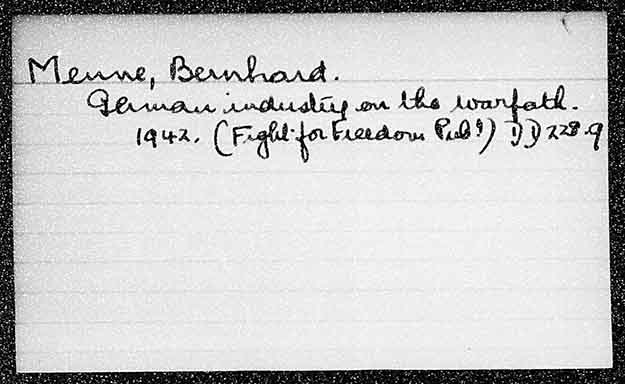 Menne, Bernhard.
German industry on the warpath.
1942. (Fight for Freedom Publ.) DD 228.9